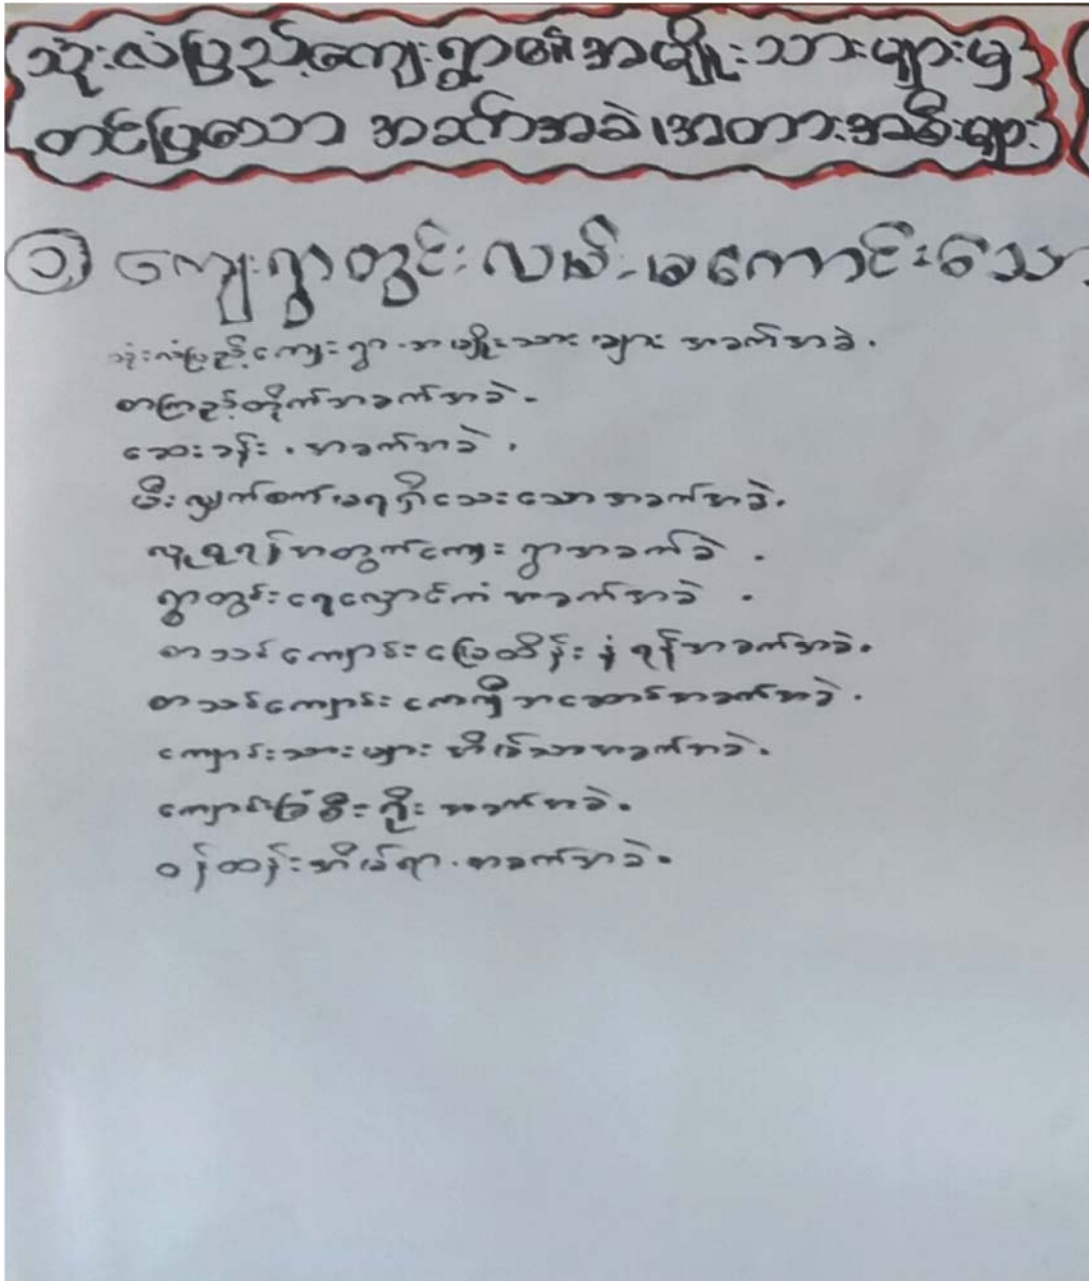 သုံးလံပြည့်ကျေးရွာ၏အမျိုးသားများမှ
တင်ပြသော အခက်အခဲ၊အတားအဆီးများ
၁) ကျေးရွာတွင်းလမ်းမကောင်းသော
သုံးလံပြည့်ကျေးရွာ.အမျိုးသားများ အခက်အခဲ.
စာကြည့်တိုက်အခက်အခဲ-
ဆေးခန်း.အခက်အခဲ.
မီးလျှပ်စစ်မရရှိသေးသောအခက်အခဲ.
လူစုရန်အတွက်ကျေးရွာအခက်ခဲ.
ရွာတွင်းရေလှောင်ကံအခက်အခဲ.
စာသင်ကျောင်းမြေထိန်းနံရန်အခက်အခဲ.
စာသင်ကျောင်း အဆောင်အခက်အခဲ.
ကျောင်းသားများအိမ်သာအခက်အခဲ.
ကျောင်းခြံစီးရိုးအခက်အခဲ.
ဝန်ထန်းအိမ်ရာ.အခက်အခဲ.